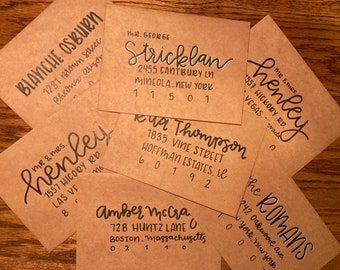 BLANCHE OSBURN
9231 Brown Street
MR. GEORGE
Stricklan
2455 CANTBURY LN
MINEOLA, NEW YORK
11501
MR. & MRS.
henley
1557 HICKORY RD
VEGAS
MR. & MRS.
henley
1557 HICKORY RD
LAS VEGAS
8
Thompson
1835 VINE STREET
HOFFMAN ESTATES, IL
60192
amber McCray
728 HUNTZ LANE
BOSTON, Massachusetts
02110
ROMANS